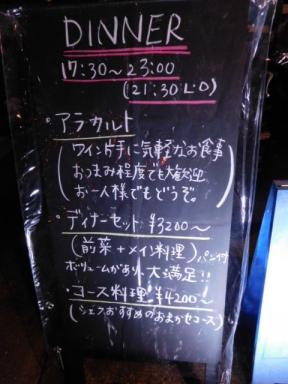 DINNER
17:30～23:00
(21:30 L.O)
・アラカルト
(ワイン片手に気軽なお食事
おつまみ程度でも大歓迎
お一人様でもどうぞ。)
・ディナーセット ¥3200～
(前菜+メイン料理)パン付
ボリュームがあり、大満足!!
・コース料理 ¥4200～
(シェフおすすめのおまかせコース)